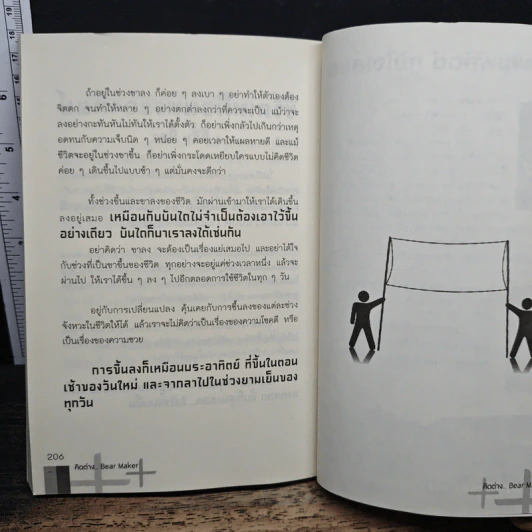 ถ้าอยู่ในช่วงขาลง ก็ค่อย ๆ ลงเบา ๆ อย่าทำให้ตัวเองต้อง
จิตตก จนทำให้หลาย ๆ อย่างตกต่ำลงกว่าที่ควรจะเป็น แม้ว่าจะ
ลงอย่างกะทันหันไม่ทันให้เราได้ตั้งตัว ก็อย่าเพิ่งกลัวไปเกินกว่าเหตุ
อดทนกับความเจ็บนิด ๆ หน่อย ๆ คอยเวลาให้แผลหายดี และแม้
ชีวิตจะอยู่ในช่วงขาขึ้น ก็อย่าเพิ่งกระโดดเหยียบใครแบบไม่คิดชีวิต
ค่อย ๆ เดินขึ้นไปแบบช้า ๆ แต่มั่นคงจะดีกว่า
ทั้งช่วงขึ้นและขาลงของชีวิต มักผ่านเข้ามาให้เราได้เดินขึ้น
ลงอยู่เสมอ เหมือนกับบันไดไม่จำเป็นต้องเอาไว้ขึ้น
อย่างเดียว บันไดก็มาเราลงได้เช่นกัน
อย่าคิดว่า ขาลง จะต้องเป็นเรื่องแย่เสมอไป และอย่าได้ใจ
กับช่วงที่เป็นขาขึ้นของชีวิต ทุกอย่างจะอยู่แค่ช่วงเวลาหนึ่ง แล้วจะ
ผ่านไป ให้เราได้ขึ้น ๆ ลง ๆ ไปอีกตลอดการใช้ชีวิตในทุก ๆ วัน
อยู่กับการเปลี่ยนแปลง คุ้นเคยกับการขึ้นลงของแต่ละช่วง
จังหวะในชีวิตให้ได้ แล้วเราจะไม่คิดว่าเป็นเรื่องของความโชคดี หรือ
เป็นเรื่องของความซวย
การขึ้นลงก็เหมือนพระอาทิตย์ ที่ขึ้นในตอน
เช้าของวันใหม่ และจากลาไปในช่วงยามเย็นของ
ทุกวัน
206
คิดต่าง.. Bear Maker
คิดต่าง.. Bear M